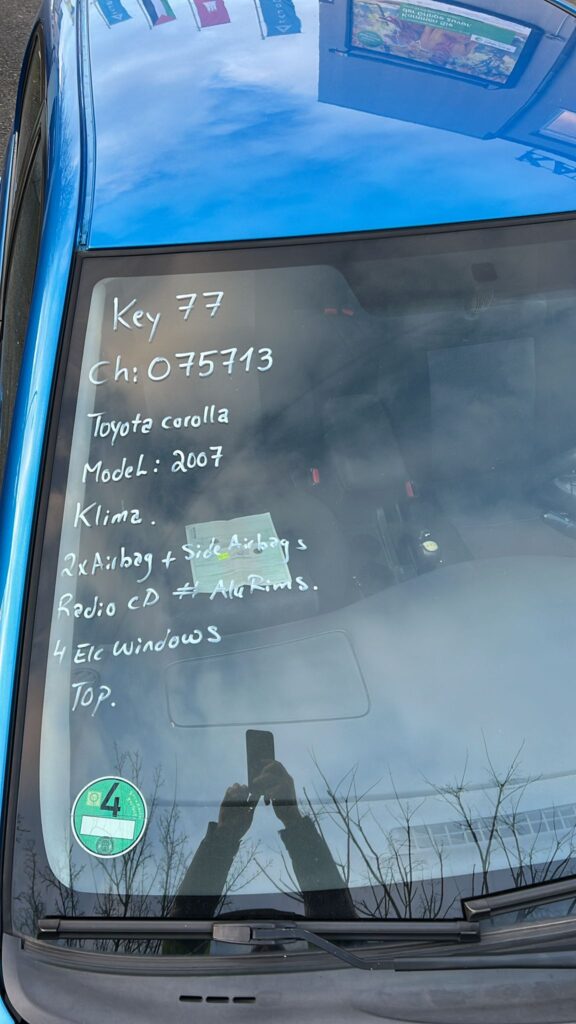 Key 77
Ch: 075713
Toyota corolla
Model: 2007
Klima.
2xAirbag + Side Airbags
Radio CD # Alu Rims.
4 Elc Windows
Top.
4